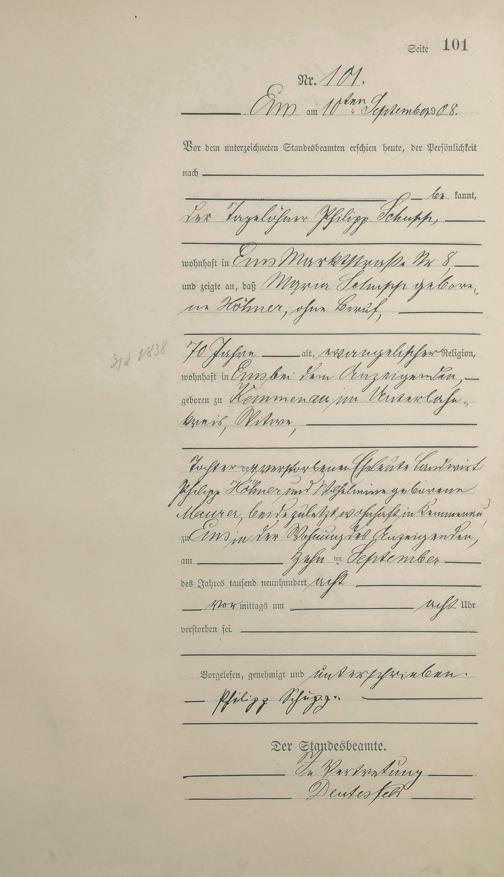 Seite 101
Nr. 101.
Ems am 10ten September 1908.
Vor dem unterzeichneten Standesbeamten erschien heute, der Persönlichkeit
nach
be kannt,
der Tagelöhner Philipp Schupp,
wohnhaft in Ems Marktstraße Nr 8,
und zeigte an, daß Maria Schupp gebore-
ne Höhner, ohne Beruf,
70 Jahre alt, evangelischer Religion,
wohnhaft in Ems bei dem Anzeigenden,
geboren zu Kemmenau im Unterlahn-
kreis, Witwe,
Tochter der verstorbenen Eheleute Landwirt
Philipp Höhner und Wilhelmine geborene
Maurer, beide zuletzt wohnhaft in Kemmenau
zu Ems in der Wohnung des Anzeigenden,
am zehn ten September
des Jahres tausend neunhundert acht
vor mittags um acht Uhr
verstorben sei.
Vorgelesen, genehmigt und unterschrieben.
Philipp Schupp.
Der Standesbeamte.
In Vertretung